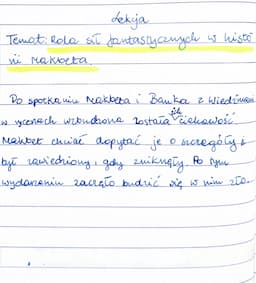 Lekcja
Temat: Rola sił fantastycznych w histo
rii Makbeta.
Po spotkaniu Makbeta i Banka z Wiedźmami
w rycerzach wzbudzona została ich ciekawość.
Makbet chciał dopytać je o szczegóły i
był zawiedziony, gdy zniknęły. Po tym
wydarzeniu zaczęło budzić się w nim zło.